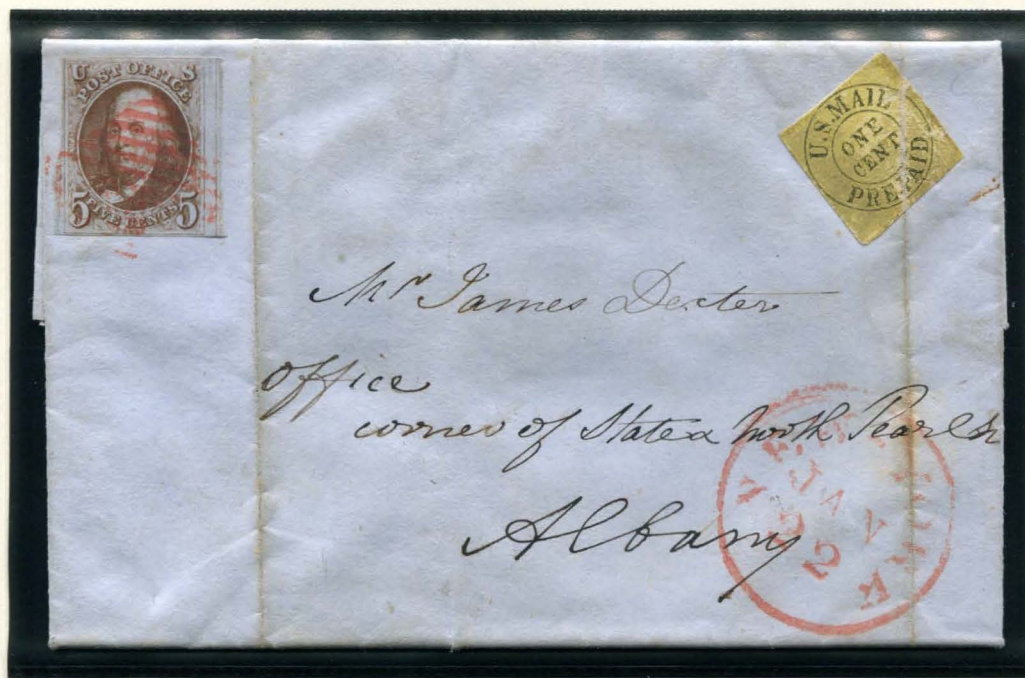 U S
POST OFFICE
5 FIVE CENTS 5
U.S. MAIL
ONE
CENT
PREPAID
Mr James Dexter
office
corner of State & North Pearl St
Albany
NEW YORK
JAN
22